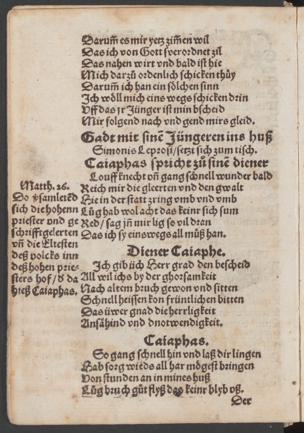 Darum̃ es mir yetz zim̃en wil
Das ich von Gott f̃verordnet zil
Das nahen wirt vnd bald ist hie
Mich darzů ordenlich schicken thůy
Darum̃ ich han ein sölchen sinn
Ich wöll mich eins wegs schicken drin
Vff das jr Jünger ist min bscheid
Mir folgend nach vnd gend mirs gleid.
Gadt mit sinẽ Jüngeren ins huß
Simonis Leprosi/setzt sich zum tisch.
Caiaphas spricht zů sinẽ diener
Louff knecht vñ gang schnell wunder bald
Reich mir die gleerten vnd den gwalt
Hie in der statt zring vmb vnd vmb
Lůg hab wol acht das keinr sich sum
Red/ sag jñ mir lig so vil dran
Das ich sy einswegs all můß han.
Matth. 26.
Do ỽsamletẽd
sich die hohenn
priester vnd ge
schrifftgelerten
vñ die Eltesten
deß volcks inn
deß hohen prie-
sters hof/ ď da
hieß Caiaphas.
Diener Caiaphe.
Ich gib üch Herr grad den bescheid
All wil ichs by der ghorsamkeit
Nach altem bruch gewon vnd sitten
Schnell heissen kon früntlichen bitten
Das üwer gnad die herrligkeit
Ansähind vnd dnotwendigkeit.
Caiaphas.
So gang schnell hin vnd laß dir lingen
Hab sorg wieds all har mögest bringen
Von stunden an in mines huß
Lůg bruch gůt flyß das keinr blyb vß.
Der